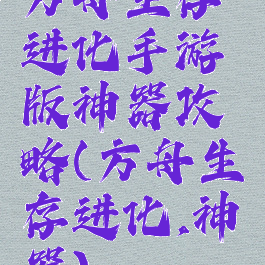 方舟生存
进化手游
版神器攻
略(方舟生
存进化.神
器)